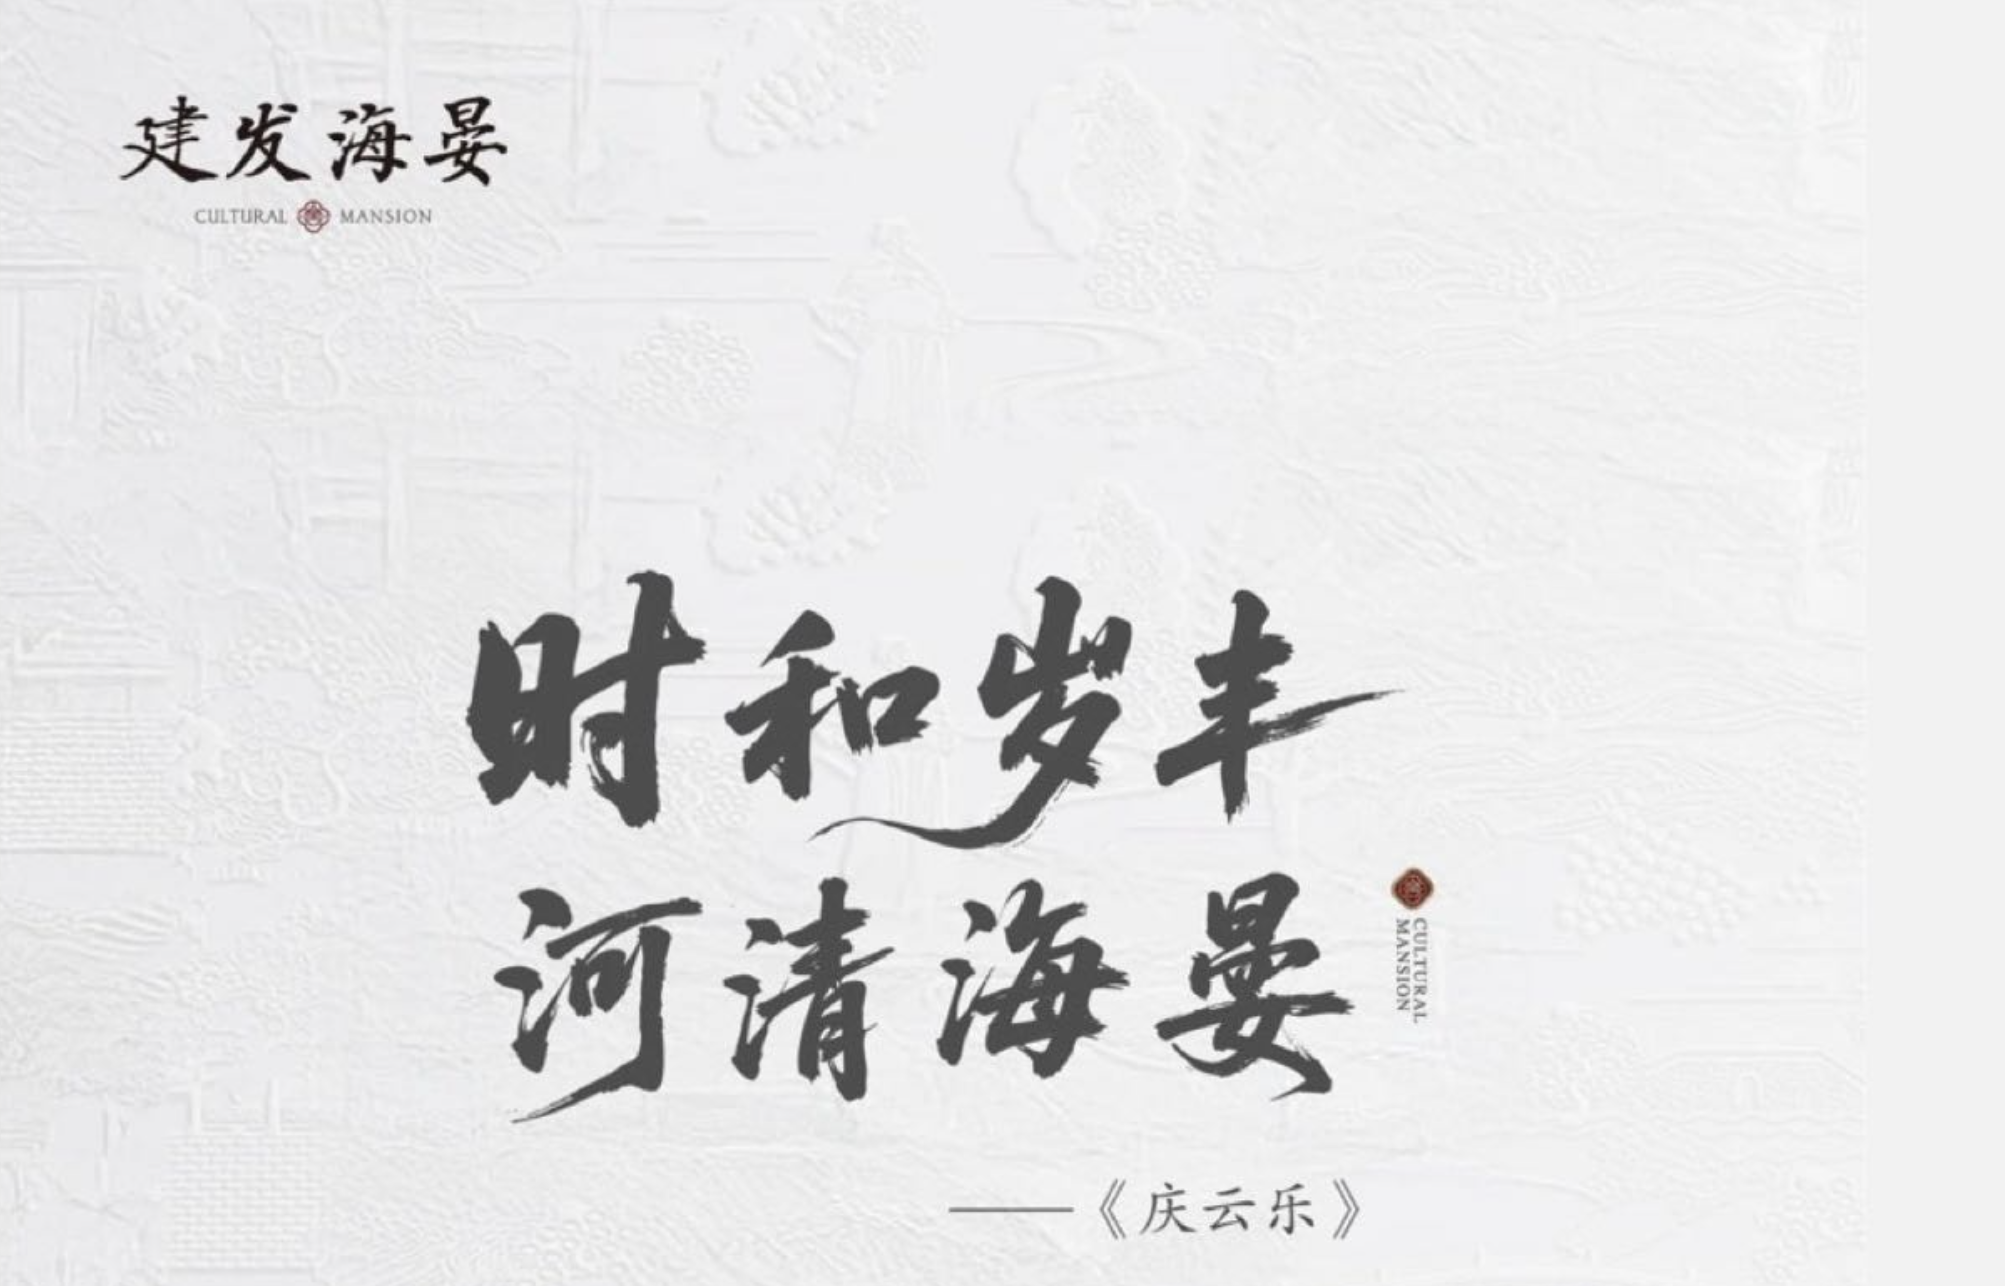 建发海晏
CULTURAL MANSION
时和岁丰
河清海晏
CULTURAL
MANSION
——《庆云乐》